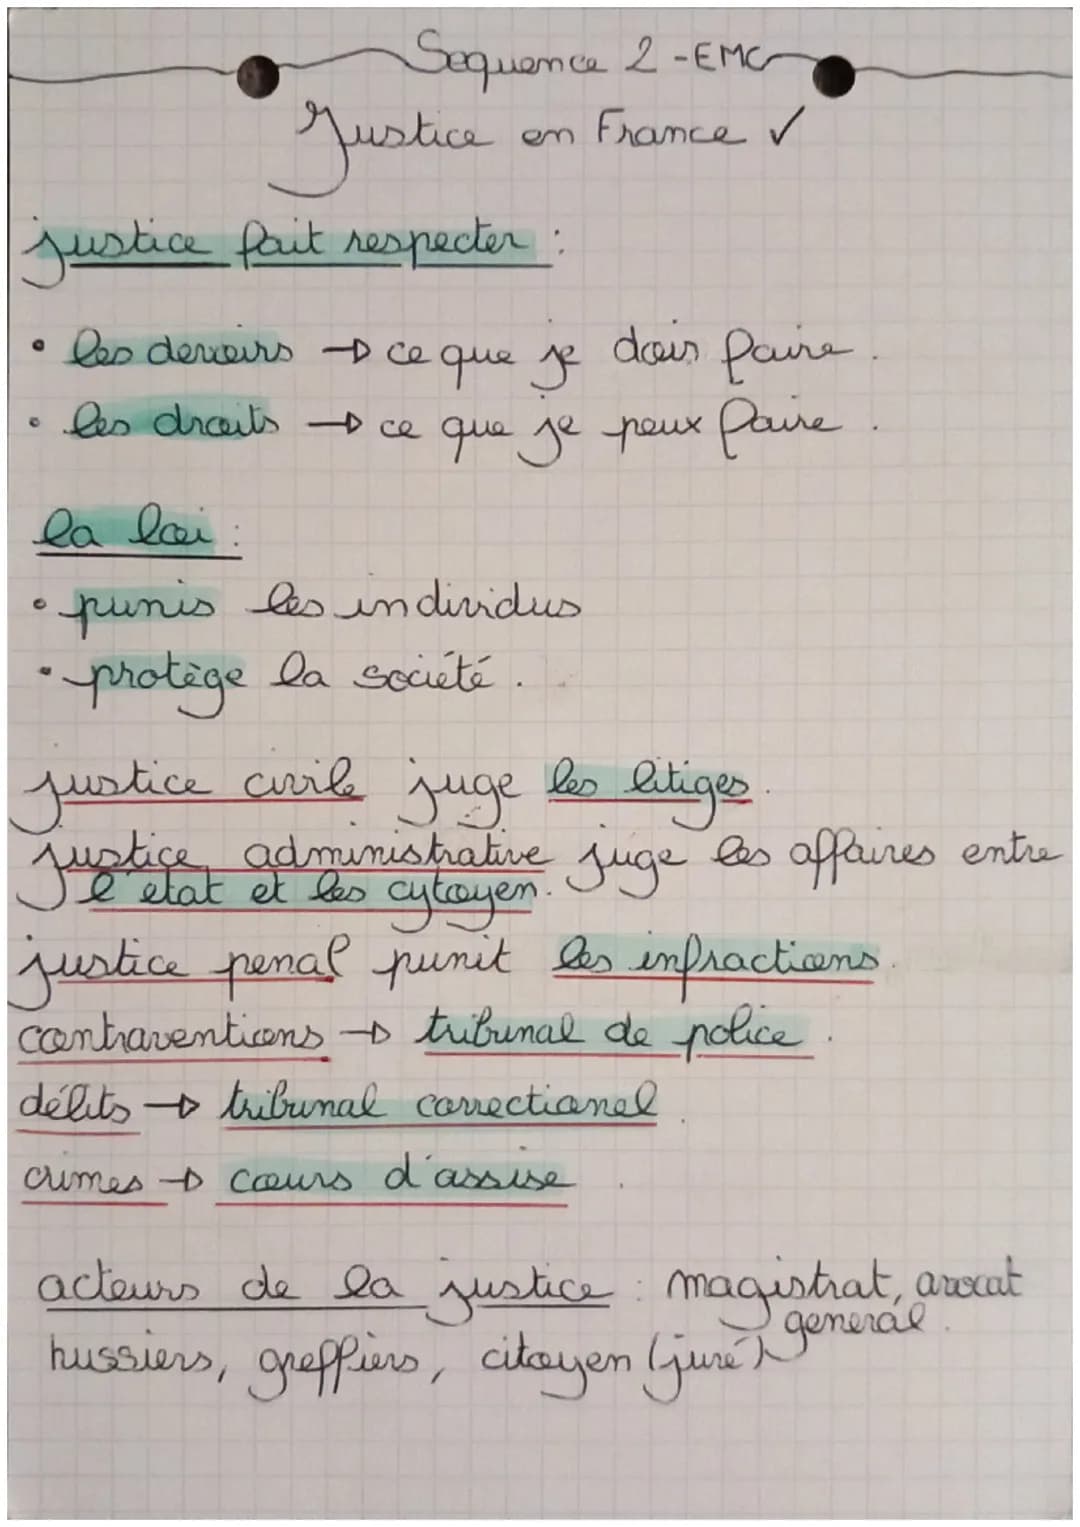 Sequence 2 - EMC
Justice en France ✓
justice fait respecter :
• les devoirs → ce que je dois faire.
• les droits → ce que je peux faire.
la loi :
• punis les individus
• protège la société.
justice civile juge les litiges.
justice administrative juge les affaires entre
l'état et les cytoyen.
justice penal punit les infractions.
contraventions → tribunal de police.
délits → tribunal correctionel.
crimes → cours d'assise.
acteurs de la justice : magistrat, avocat
general.
hussiers, greffiers, citoyen (juré)